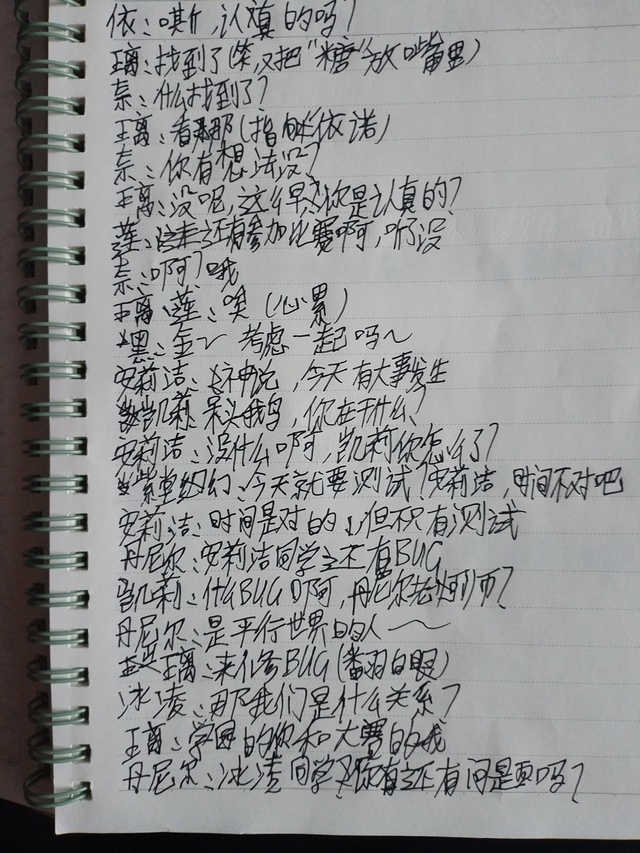 依：嘶，认真的吗？
璃：找到了(笑，又把“糖”放嘴里)
奈：什么找到了？
璃：看那(指向依诺)
奈：你有想法没？
璃：没呢，这么早？你是认真的？
莲：还有参加比赛啊，听没
奈：啊？哦
璃 莲：唉(心累)
黑：金~ 考虑一起吗~
安莉洁：神说，今天有大事发生
凯莉：呆头鹅，你在干什么？
安莉洁：没什么啊，凯莉你怎么了？
紫堂幻：今天就要测试，安莉洁，时间不对吧
安莉洁：时间是对的，但不只有测试
丹尼尔：安莉洁同学，还有BUG
凯莉：什么BUG啊，丹尼尔老师？
丹尼尔：是平行世界的人——
璃：来修BUG(翻白眼)
冰凌：那我们是什么关系？
璃：学园的你和大赛的我
丹尼尔：冰凌同学，你有还有问题吗？